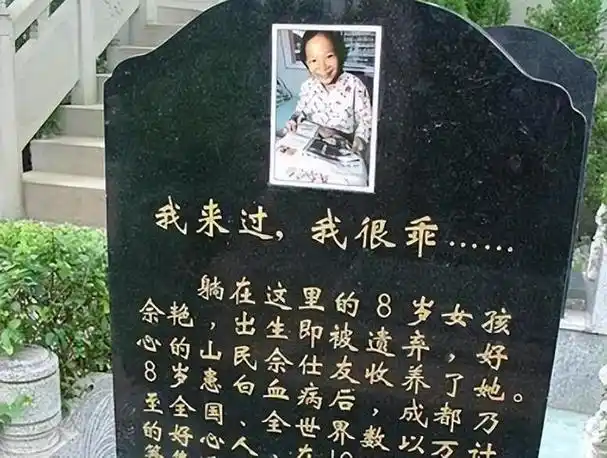 我来过，我很乖……
躺在这里的8岁女孩
佘艳，出生即被遗弃，好
心的山民佘仕友收养了她。
8岁患白血病后，成都乃
至全国、全世界数以万计
的好心人，在10
筹集